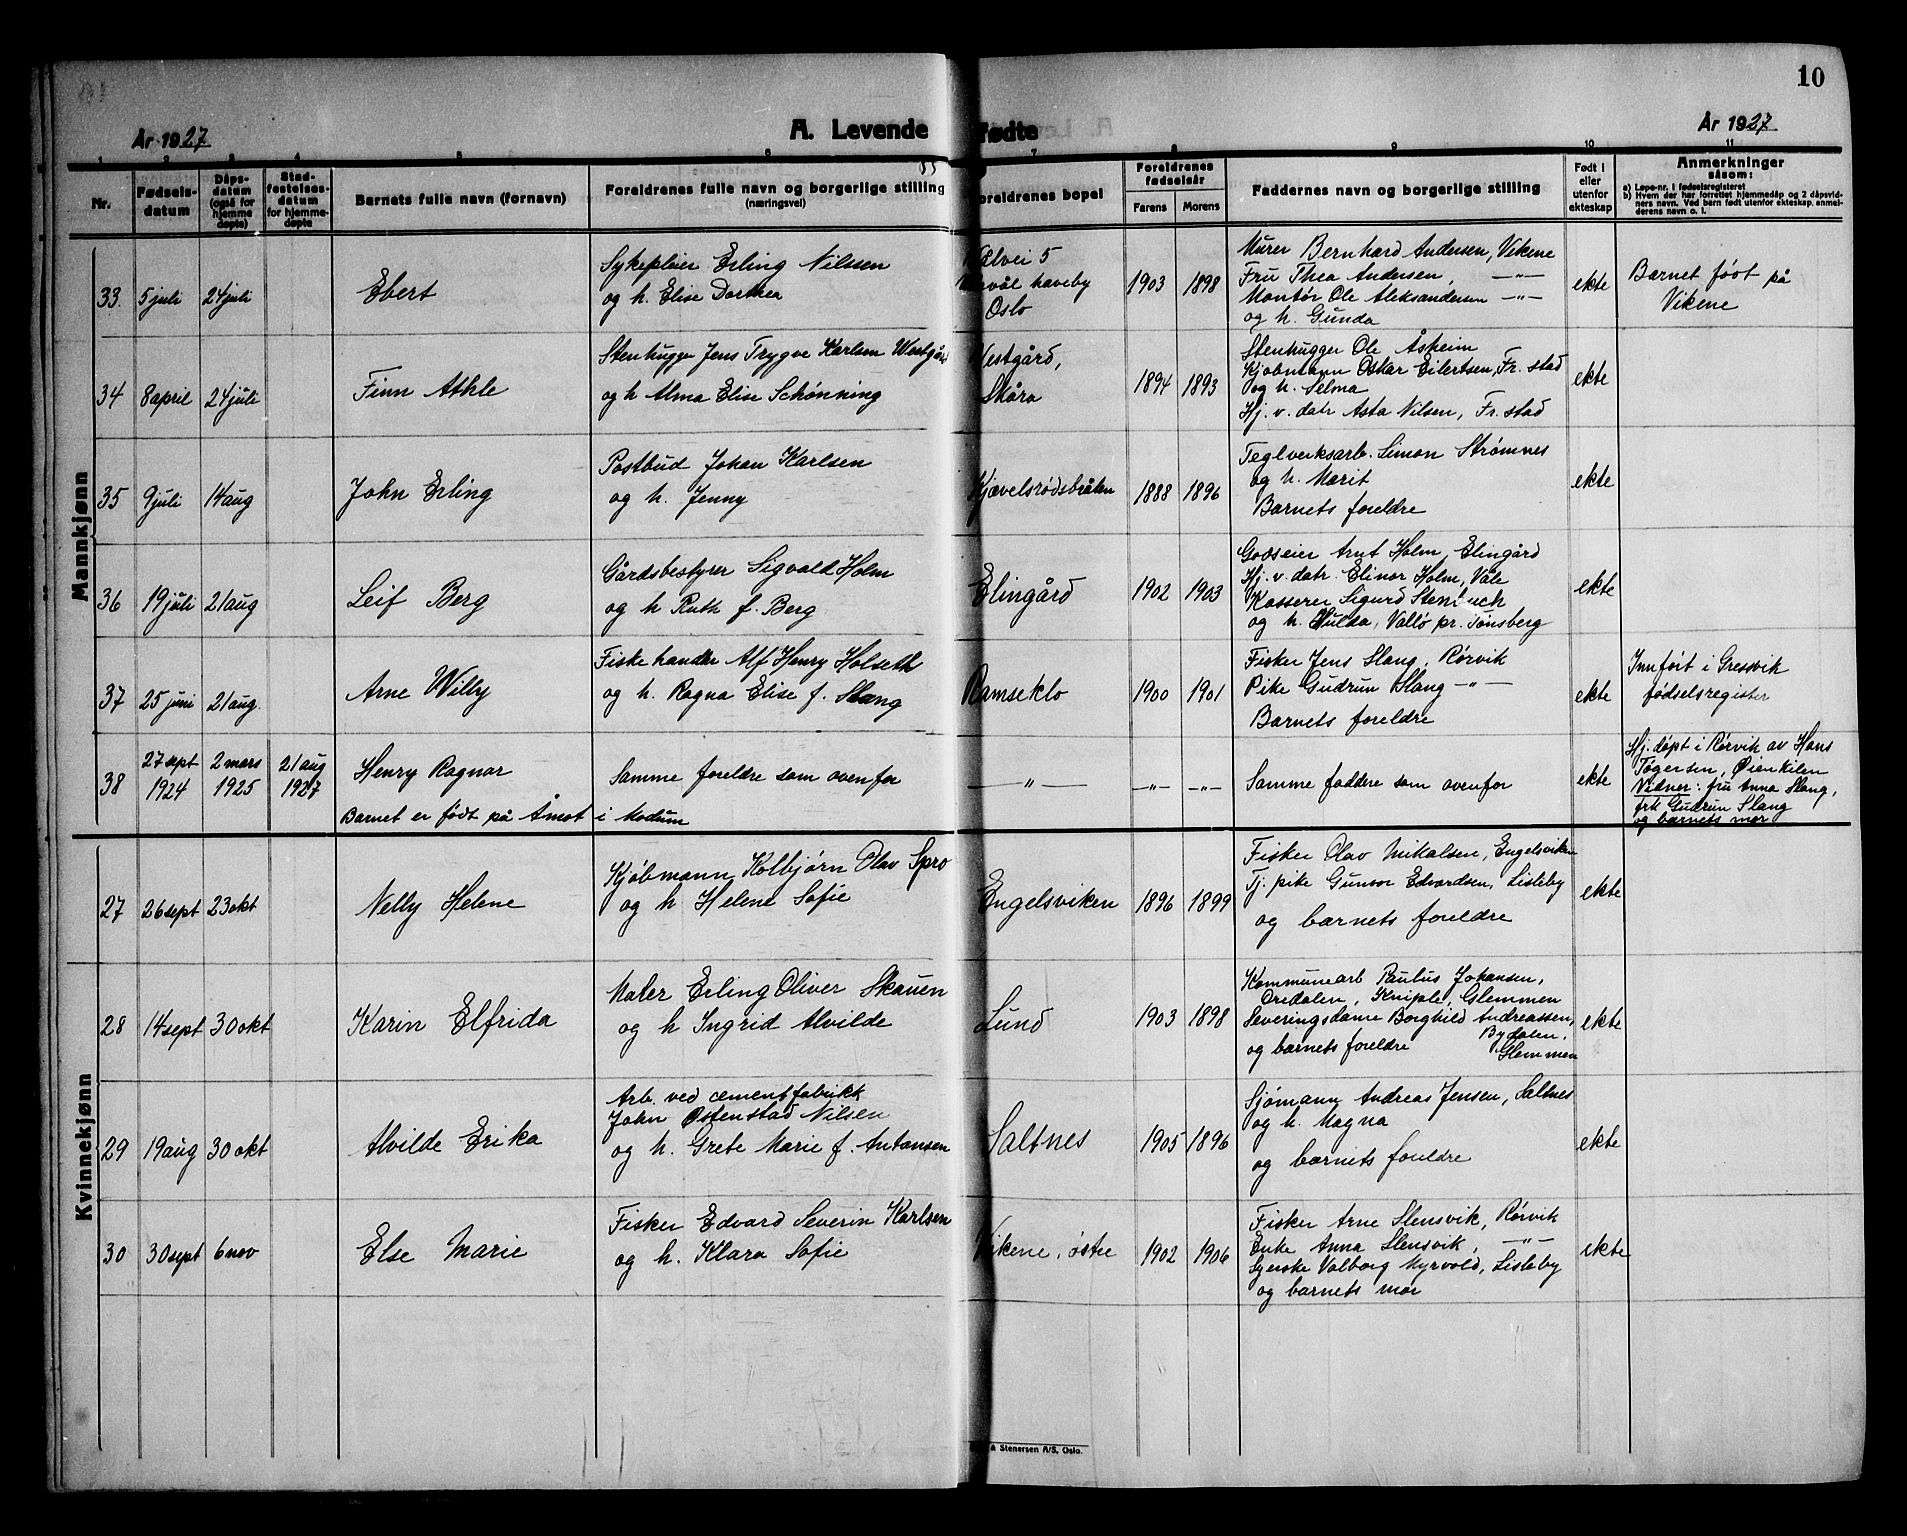 10
År 1927
A. Levende Fødte
År 1927
1 2 3 4 5 6 7 8 9 10 11
Nr.
Fødsels-
datum
Dåps-
datum
(også for
hjemme
døpte)
Stad-
festelses-
datum
for hjemme-
døpte
Barnets fulle navn (fornavn)
Foreldrenes fulle navn og borgerlige stilling
(næringsvei)
Foreldrenes bopel
Foreldrenes
fødselsår
Farens Morens
Faddernes navn og borgerlige stilling
Født i
eller
utenfor
ekteskap
Anmerkninger
såsom:
a) Løpe-nr. i fødselsregisteret
b) Hvem der har forrettet hjemmedåp og 2 dåpsvid-
ners navn. Ved barn født utenfor ekteskap, anmel-
derens navn o. l.
Mannkjønn
33. 5 juli 24 juli
Ebert
Sykepleier Erling Nilssen
og h. Elise Dorthea
haveby
Oslo
1903 1898
Murer Bernhard Andersen, Vikene
Fru Thea Andersen, —"—
Montør Ole Aleksandersen —"—
og h. Gunda
ekte
Barnet født på
Vikene
34 8 april 24 juli
Finn Atkle
Stenhugger Jens Trygve Karlsen Westgård
og h Alma Elise Schønning
Westgård,
Skåra
1894 1893
Stenhugger Ole Åsheim
Kjøbmann Oskar Eilertsen, Fr. stad
og h. Selma
Hj. v. datr Asta Nilsen, Fr. stad
ekte
35 9 juli 14 aug
John Erling
Postbud Johan Karlsen
og h. Jenny
Kjævelsrødsbråten
1888 1896
Teglverksarb. Simon Strømnes
og h. Marit
Barnets foreldre
ekte
36 19 juli 21 aug
Leif Berg
Gårdsbestyrer Sigvald Holm
og h Ruth f. Berg
Elingård
1902 1903
Godseier Arnt Holm, Elingård
Hj. v. datr. Elinor Holm, Våle
Kasserer Sigurd Stenbuch
og h. Hulda, Vallø pr. Tønsberg
ekte
37 25 juni 21 aug.
Arne Willy
Fiskehandler Alf Henry Holseth
og h. Ragna Elise f. Slang
Ramseklo
1900 1901
Fisker Jens Slang, Rørvik
Pike Gudrun Slang —"—
Barnets foreldre
ekte
Innført i Gressvik
fødselsregister
38 27 sept 1924 2 mars 1925 21 aug 1927
Henry Ragnar
Barnet er født på Åmot i Modum
Samme foreldre som ovenfor
— " —
—"— —"—
Samme faddere som ovenfor
ekte
Hj. døpt i Rørvik av Hans
Tøgersen, Øienkilen
Vidner: fru Anna Slang,
frk Gudrun Slang
og barnets mor
Kvinnekjønn
27 26 sept 23 okt
Nelly Helene
Kjøbmann Kolbjørn Olav Spro
og h Helene Sofie
Engelsviken
1896 1899
Fisker Olav Mikalsen, Engelsviken
Tj. pike Gunvor Edvardsen, Lisleby
og barnets foreldre
ekte
28 14 sept 30 okt
Karin Elfrida
Maler Erling Oliver Skauen
og h Ingrid Alvilde
Lund
1903 1898
Kommunearb Paulus Johansen,
Oredalen, Kniple, Glemmen
Severingsdame Borghild Andreassen,
og barnets foreldre Bydalen,
Glemmen
ekte
29 19 aug 30 okt
Alvilde Erika
Arb. ved cementfabrikk
John Østenstad Nilsen
og h. Grete Marie f. Antonsen
Saltnes
1905 1896
Sjømann Andreas Jensen, Saltnes
og h. Magna
og barnets foreldre
ekte
30 30 sept 6 nov
Else Marie
Fisker Edvard Severin Karlsen
og h. Klara Sofie
Vikene, østre
1902 1906
Fisker Arne Slensvik, Rørvik
Enke Anna Slensvik, —"—
Syerske Valborg Myrvold, Lisleby
og barnets mor
ekte
& Stenersen A/S, Oslo.